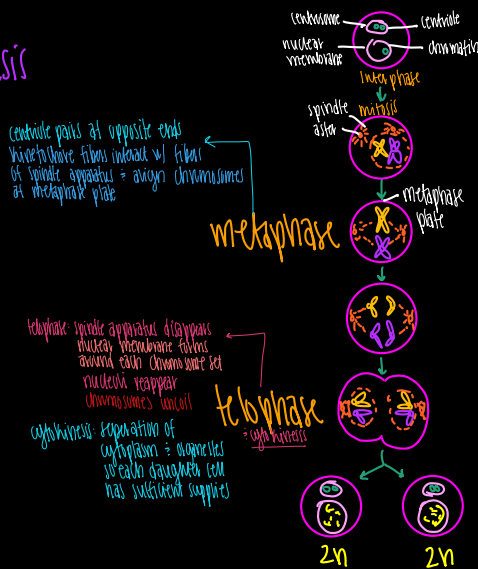 centrosome
centriole
nuclear
membrane
chromatin
Interphase
sis
mitosis
spindle
aster
centriole pairs at opposite ends
kinetochore fibers interact w/ fibers
of spindle apparatus & align chromosomes
at metaphase plate
metaphase
metaphase
plate
telophase: spindle apparatus disappears
nuclear membrane forms
around each chromosome set
nucleoli reappear
chromosomes uncoil
telophase
& cytokinesis
cytokinesis: seperation of
cytoplasm & organelles
so each daughter cell
has sufficient supplies
2n
2n